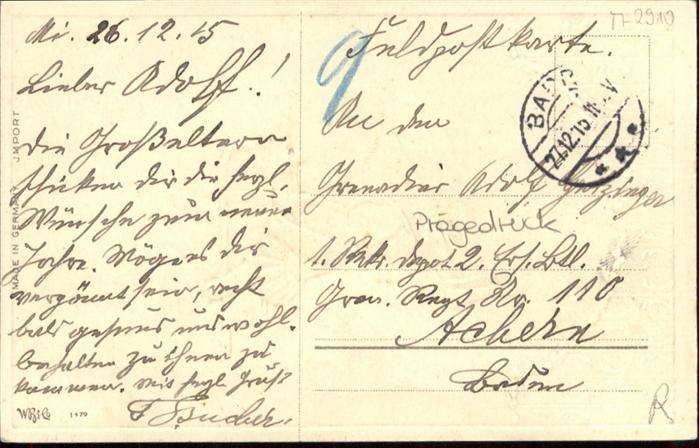 Mi. 26.12.15
Lieber Adolf!
Die Großeltern
schicken dir die herzl.
Wünsche zum neuen
Jahre. Möge es dir
vergönnt sein, recht
bald gesund und wohl-
behalten zu ihnen zu
kommen. Mit herzl. Gruß
Bucher.
MADE IN GERMANY IMPORT
1179
Π-2910
Feldpostkarte.
9
An den
BAD
27.12.15 11-12V
Grenadier Adolf
Prägedruck
1. Rekr. Depot 2. Ers. Btl.
Gren. Regt. Nr. 110
Achern
Baden
R